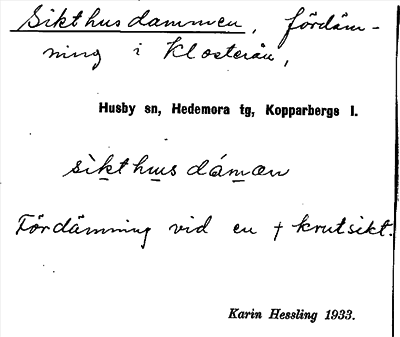 Sikthusdammen, fördäm-
ning i Klosterån,
Husby sn, Hedemora tg, Kopparbergs l.
sikthusdámæn
Fördämning vid en † krutsikt.
Karin Hessling 1933.